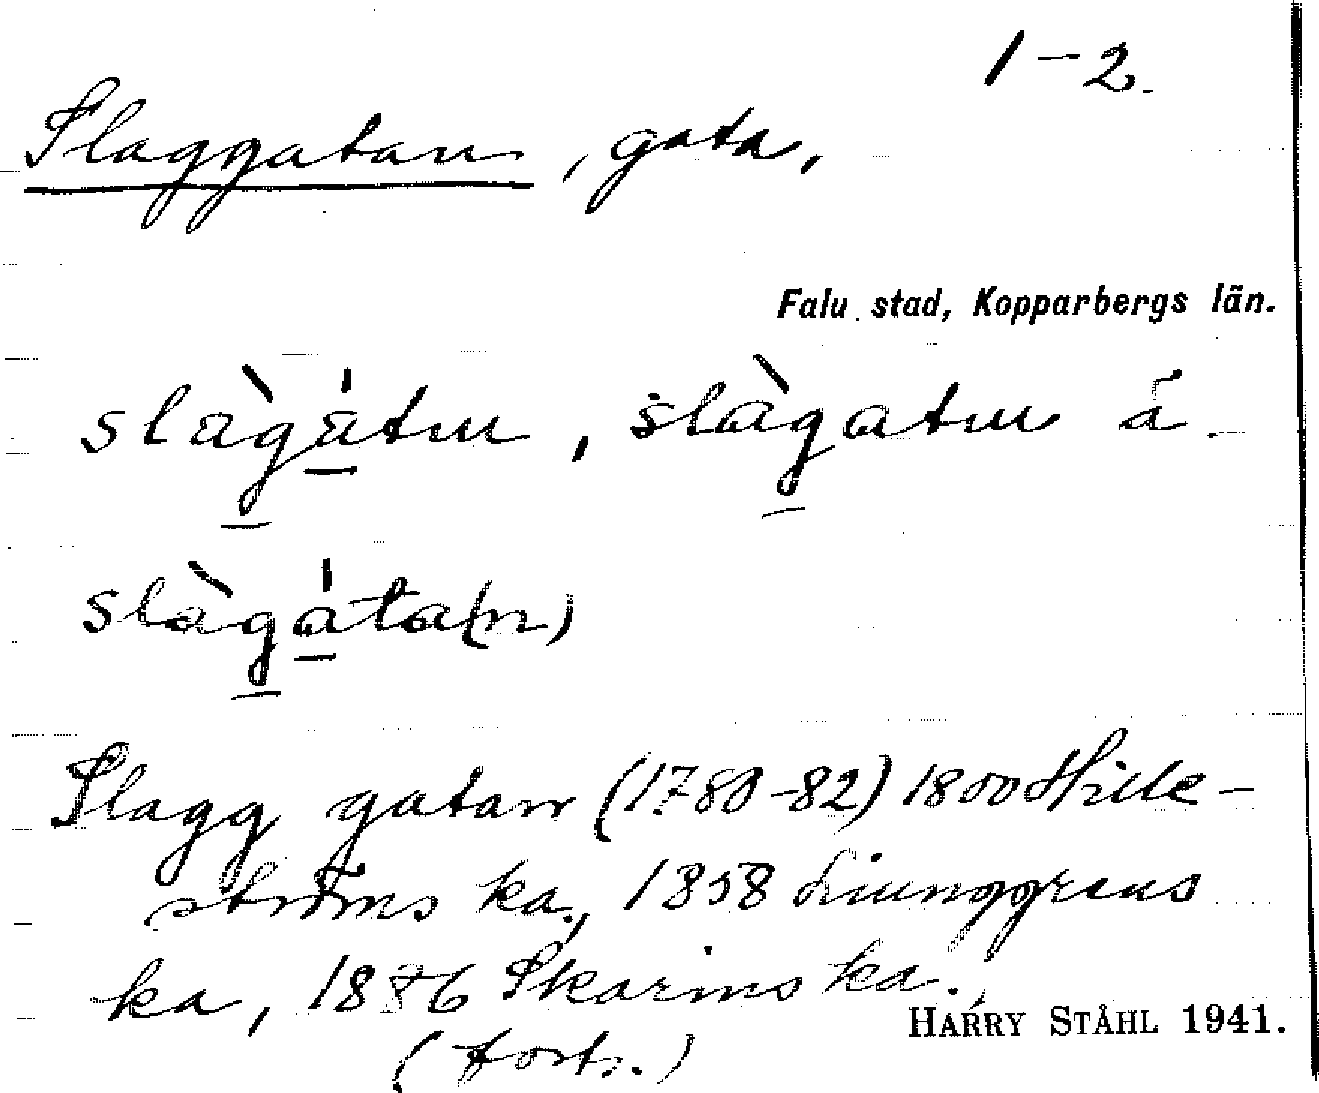 1-2.
Slaggatan, gata,
Falu stad, Kopparbergs län.
slàgátŋ, slàgatŋ å.
slàgáta(n)
Slagg gatan (1780-82) 1800 Hille-
ströms ka., 1858 Liunggrens
ka, 1886 Skarins ka.,
(forts.)
HARRY STÅHL 1941.